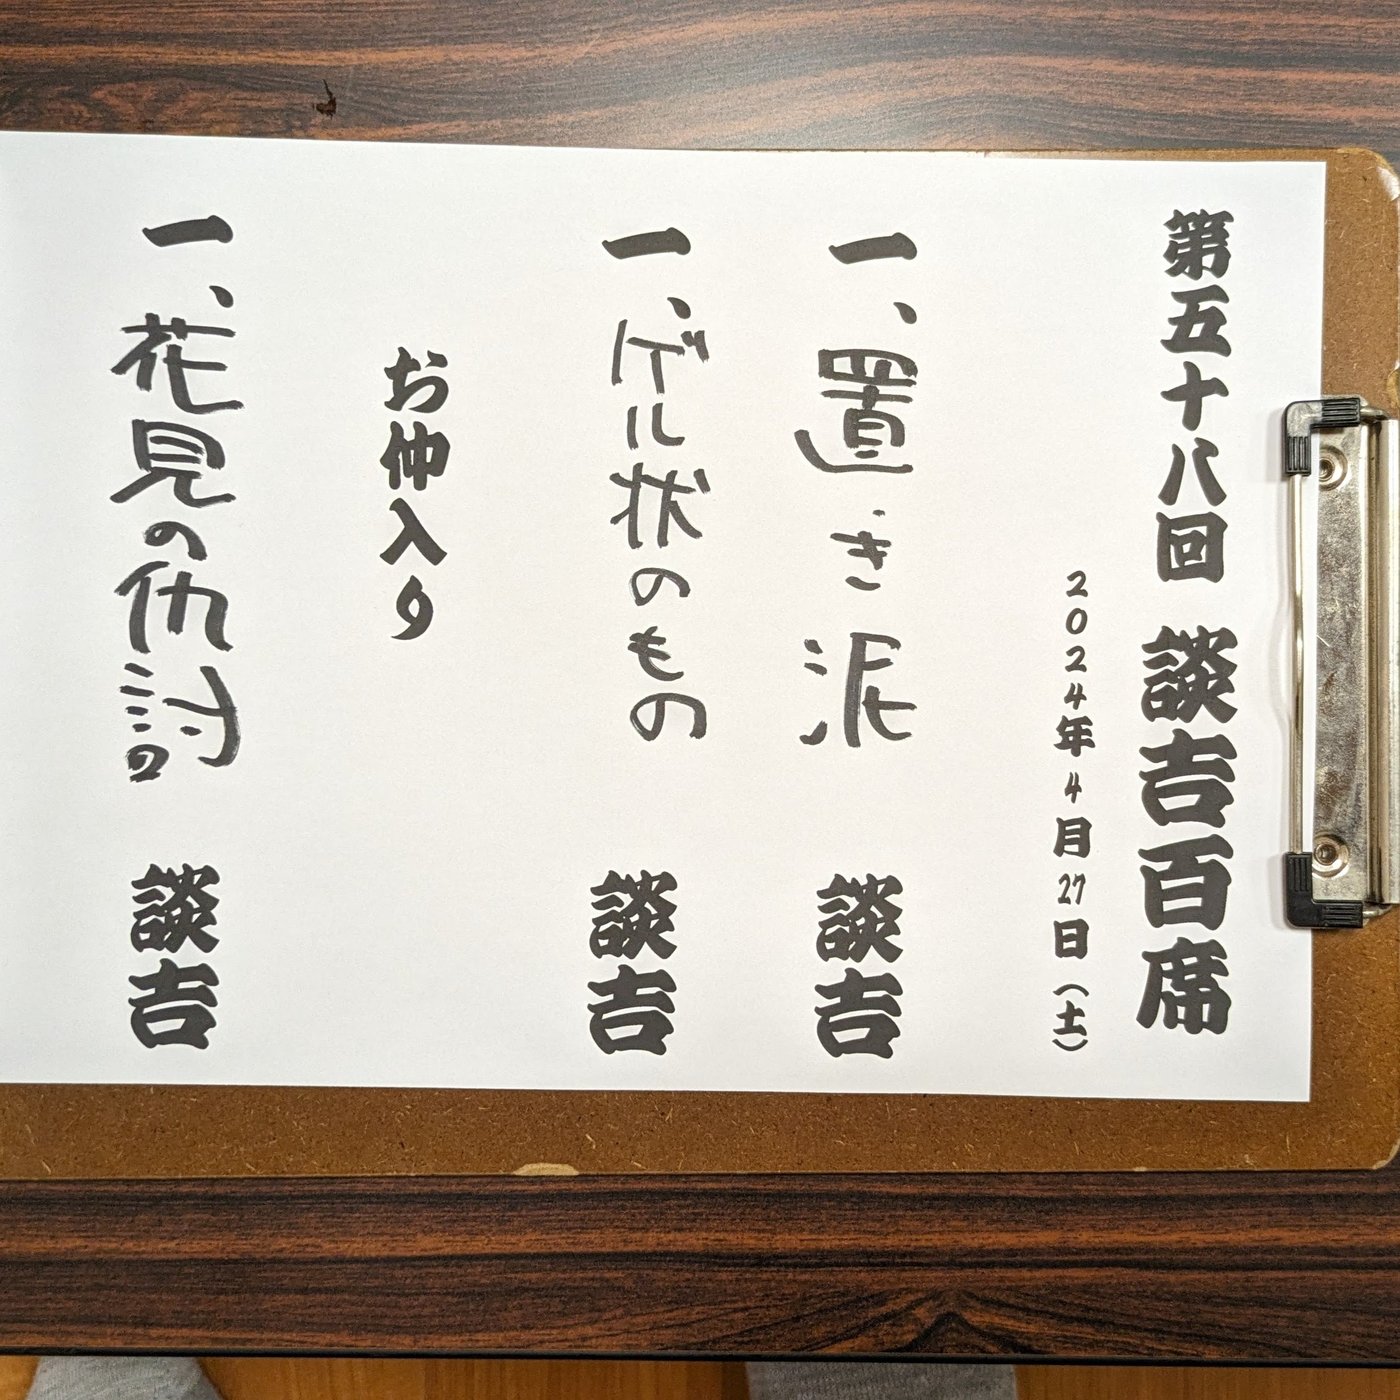 第五十八回 談吉百席
2024年4月27日(土)
一、置き泥 談吉
一、ゲル状のもの 談吉
お仲入り
一、花見の仇討 談吉